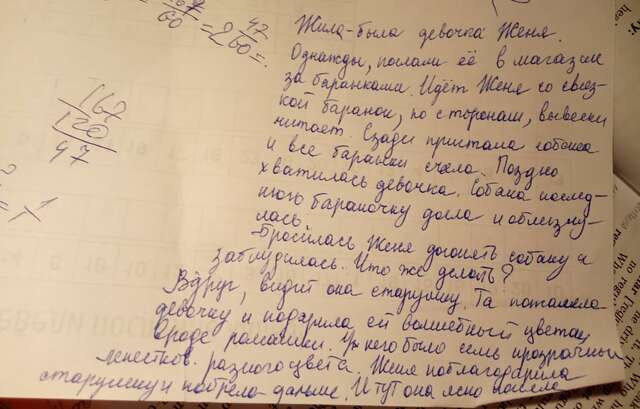 167/60 = 2 47/60 =
167
120
47
= 1
Жила-была девочка Женя.
Однажды, послали её в магазин
за баранками. Идёт Женя со связ-
кой баранок, по сторонам, вывески
читает. Сзади пристала собака
и все баранки съела. Поздно
хватилась девочка. Собака послед-
нюю бараночку доела и облизну-
лась.
Бросилась Женя догонять собаку и
заблудилась. Что же делать?
Вдруг, видит она старушку. Та пожалела
девочку и подарила ей волшебный цветок
вроде ромашки. У него было семь прозрачных
лепестков разного цвета. Женя поблагодарила
старушку и побрела дальше. И тут она ясно